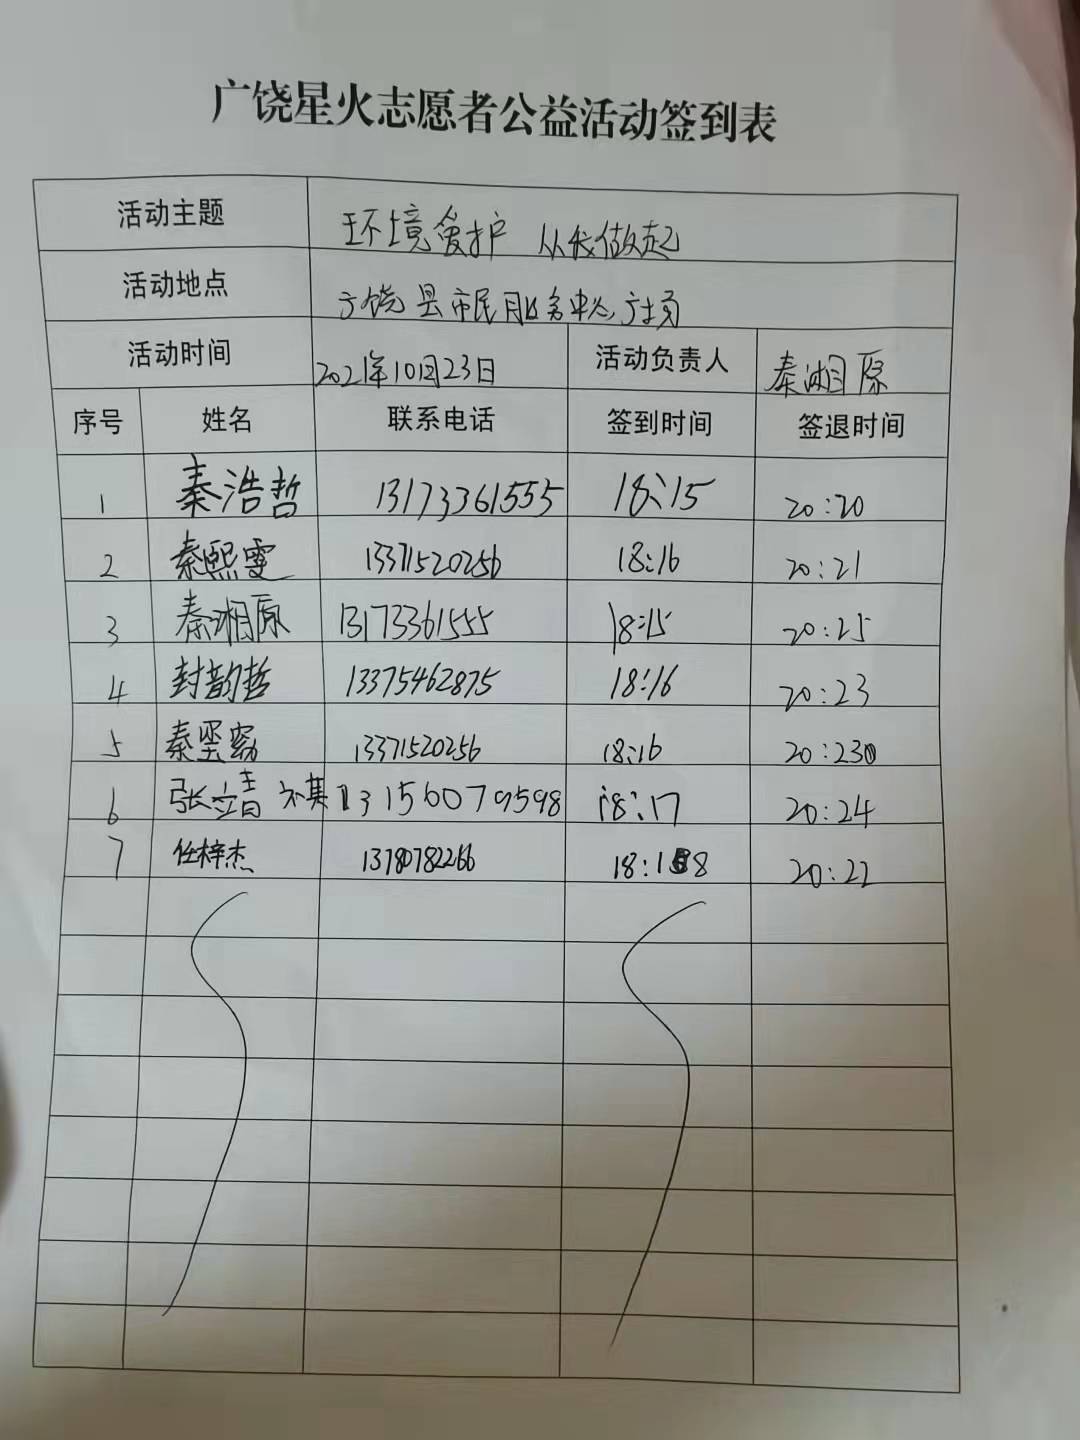 广饶星火志愿者公益活动签到表
活动主题 环境爱护 从我做起
活动地点 广饶县市民服务中心广场
活动时间 2021年10月23日 活动负责人 秦湘原
序号 姓名 联系电话 签到时间 签退时间
1 秦浩哲 13173361555 18:15 20:20
2 秦熙雯 13371520256 18:16 20:21
3 秦湘原 13173361555 18:15 20:25
4 封韵哲 13375462875 18:16 20:23
5 秦 13371520256 18:16 20:230
6 张 131560079598 18:17 20:24
7 任梓杰 13780782266 18:18 20:22